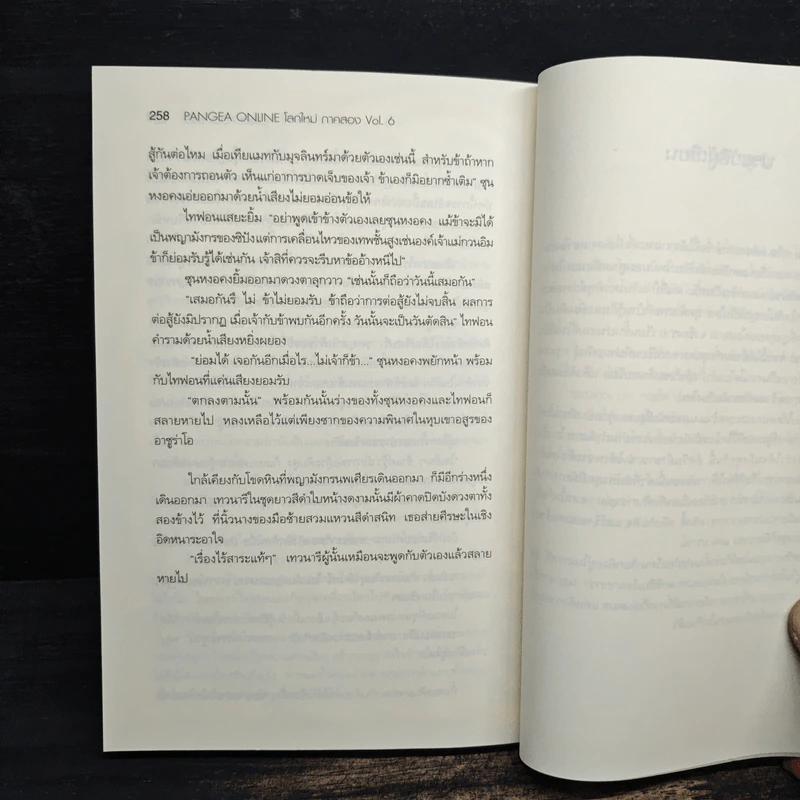 258 PANGEA ONLINE โลกใหม่ ภาคสอง Vol. 6
สู้กันต่อไหม เมื่อเทียแมทกับมุจลินทร์มาด้วยตัวเองเช่นนี้ สำหรับข้าถ้าหาก
เจ้าต้องการถอนตัว เห็นแก่อาการบาดเจ็บของเจ้า ข้าเองก็มิอยากซ้ำเติม” ซุน
หงอคงเอ่ยออกมาด้วยน้ำเสียงไม่ยอมอ่อนข้อให้
ไทฟอนแสยะยิ้ม “อย่าพูดเข้าข้างตัวเองเลยซุนหงอคง แม้ข้าจะมิได้
เป็นพญามังกรของซิปังแต่การเคลื่อนไหวของเทพชั้นสูงเช่นองค์เจ้าแม่กวนอิม
ข้าก็ย่อมรับรู้ได้เช่นกัน เจ้าสิที่ควรจะรีบหาข้ออ้างหนีไป”
ซุนหงอคงยิ้มออกมาดวงตาลุกวาว “เช่นนั้นก็ถือว่าวันนี้เสมอกัน”
“เสมอกันรึ ไม่ ข้าไม่ยอมรับ ข้าถือว่าการต่อสู้ยังไม่จบสิ้น ผลการ
ต่อสู้ยังมิปรากฏ เมื่อเจ้ากับข้าพบกันอีกครั้ง วันนั้นจะเป็นวันตัดสิน” ไทฟอน
คำรามด้วยน้ำเสียงหยิ่งผยอง
“ย่อมได้ เจอกันอีกเมื่อไร...ไม่เจ้าก็ข้า...” ซุนหงอคงพยักหน้า พร้อม
กับไทฟอนที่แค่นเสียงยอมรับ
“ตกลงตามนั้น” พร้อมกันนั้นร่างของทั้งซุนหงอคงและไทฟอนก็
สลายหายไป หลงเหลือไว้แต่เพียงซากของความพินาศในหุบเขาอสูรของ
อาชูร่าโอ
ใกล้เคียงกับโขดหินที่พญามังกรนพเศียรเดินออกมา ก็มีอีกร่างหนึ่ง
เดินออกมา เทวนารีในชุดยาวสีดำใบหน้างดงามนั้นมีผ้าคาดปิดบังดวงตาทั้ง
สองข้างไว้ ที่นิ้วนางของมือซ้ายสวมแหวนสีดำสนิท เธอส่ายศีรษะในเชิง
อิดหนาระอาใจ
“เรื่องไร้สาระแท้ๆ” เทวนารีผู้นั้นเหมือนจะพูดกับตัวเองแล้วสลาย
หายไป